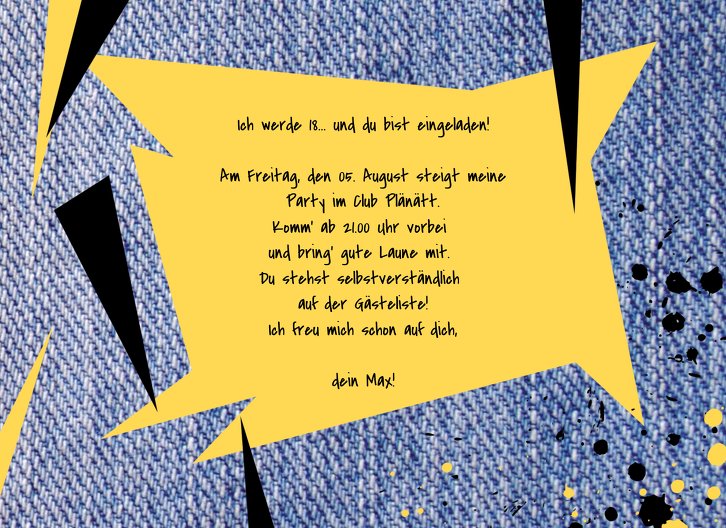 Ich werde 18... und du bist eingeladen!
Am Freitag, den 05. August steigt meine
Party im Club Plänätt.
Komm' ab 21.00 Uhr vorbei
und bring' gute Laune mit.
Du stehst selbstverständlich
auf der Gästeliste!
Ich freu mich schon auf dich,
dein Max!